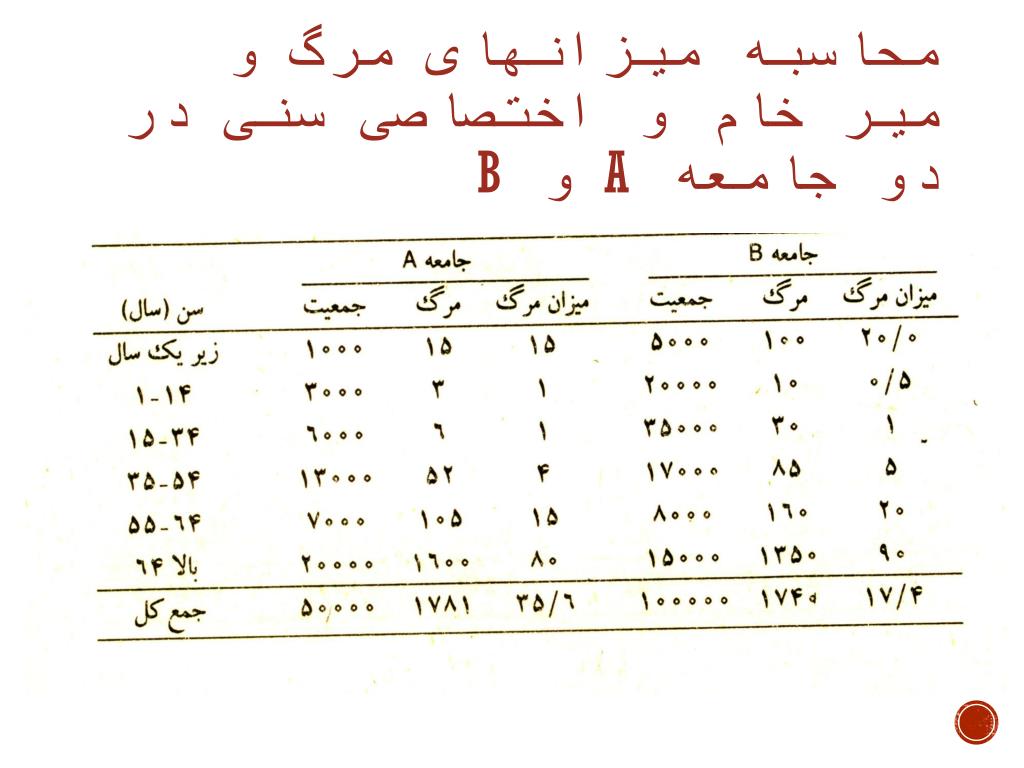 محاسبه میزانهای مرگ و
میر خام و اختصاصی سنی در
دو جامعه A و B
جامعه A جامعه B
سن (سال) جمعیت مرگ میزان مرگ جمعیت مرگ میزان مرگ
زیر یک سال ۱۰۰۰ ۱۵ ۱۵ ۵۰۰۰ ۱۰۰ ۲۰/۰
۱-۱۴ ۳۰۰۰ ۳ ۱ ۲۰۰۰۰ ۱۰ ۰/۵
۱۵-۳۴ ۶۰۰۰ ۶ ۱ ۳۵۰۰۰ ۳۰ ۱
۳۵-۵۴ ۱۳۰۰۰ ۵۲ ۴ ۱۷۰۰۰ ۸۵ ۵
۵۵-۶۴ ۷۰۰۰ ۱۰۵ ۱۵ ۸۰۰۰ ۱۶۰ ۲۰
بالا ۶۴ ۲۰۰۰۰ ۱۶۰۰ ۸۰ ۱۵۰۰۰ ۱۳۵۰ ۹۰
جمع کل ۵۰,۰۰۰ ۱۷۸۱ ۳۵/۶ ۱۰۰۰۰۰ ۱۷۴۰ ۱۷/۴